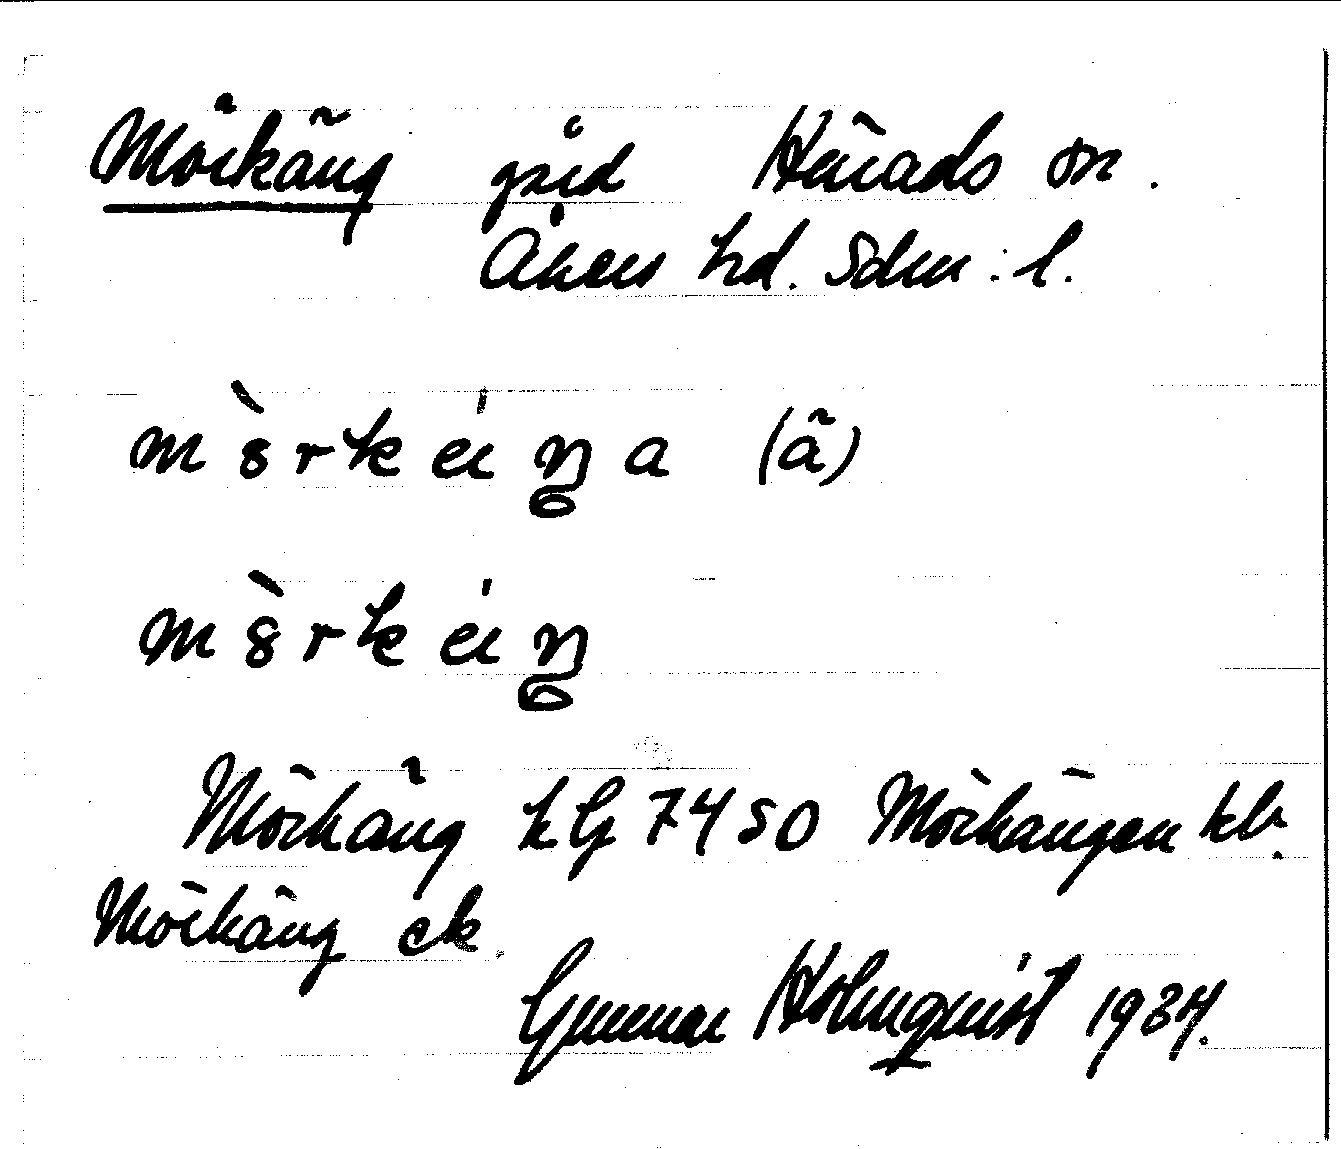 Mörkäng gård Härads sn.
Åkers hd. Sdm:l.
mörkäiŋa (ä)
mörkäiŋ
Mörkäng kG 7450 Mörkängen kb.
Mörkäng ek.
Gunnar Holmqvist 1934.